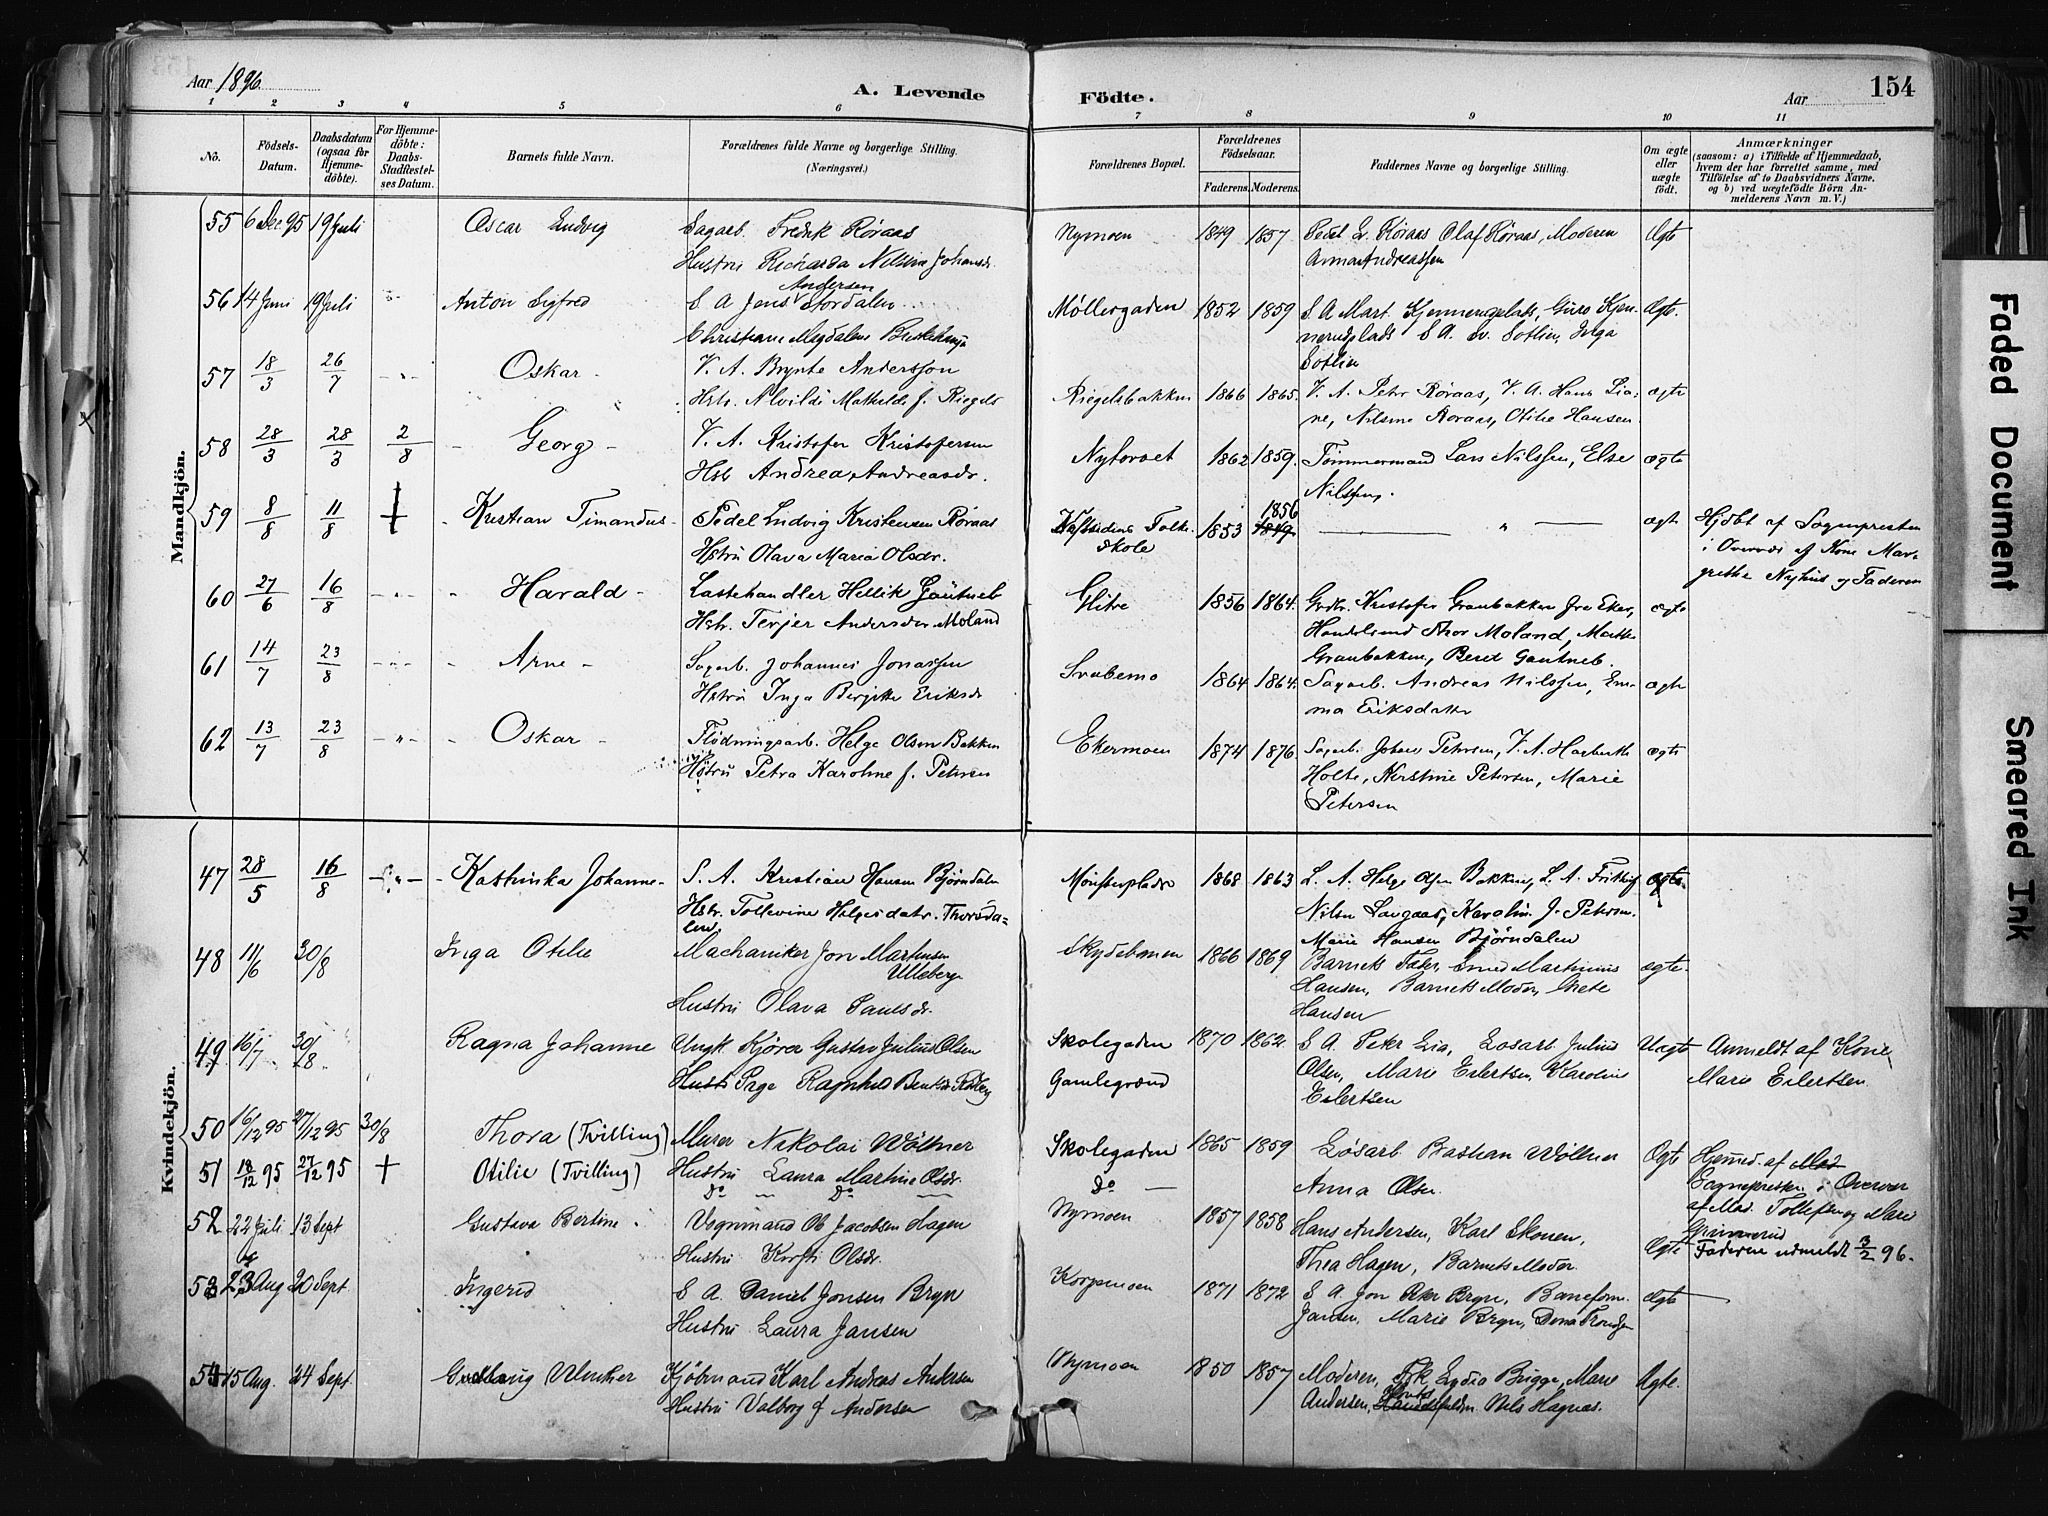 Aar 1896.
A. Levende Födte.
Aar
154
1 2 3 4 5 6 7 8 9 10 11
No.
Födsels-Datum.
Daabsdatum (ogsaa for Hjemme-döbte).
For Hjemme-döbte: Daabs-Stadfæstel-ses Datum.
Barnets fulde Navn.
Forældrenes fulde Navne og borgerlige Stilling. (Næringsvei.)
Forældrenes Bopæl.
Forældrenes Födselsaar.
Faderens. Moderens.
Faddernes Navne og borgerlige Stilling.
Om ægte eller uægte födt.
Anmærkninger
(saasom: a) i Tilfælde af Hjemmedaab, hvem der har forrettet samme, med Tilföielse af to Daabsvidners Navne, og b) ved uægtefödte Börn Anmelderens Navn m. V.)
Mandkjön.
55 6 Dec. 95 19 Juli Oscar Ludvig Sagarb. Fredrik Röraas Nymoen 1849 1857 Peder L. Röraas Olaf Röraas, Moderen Ægte
Hustru Richarda Nilsine Johansdr. Anna Andreassen
56 14 Juni 19 Juli Anton Sigfred S A Jens Andersen Stordalen Møllergaden 1852 1859 S A Mart. Ægte.
Christiane Magdalene S A. Sotlien, Inga
Sotlien
57 18/3 26/7 Oskar V. A. Brynte Andersson Riegelsbakken 1866 1865. V. A. Petr Röraas, V. A. Hans Lia- ægte
Hstr. Alvilde Mathilde f. Riegels ne, Nilsine Roraas, Otilie Hansen.
58 28/3 28/3 2/8 Georg V. A. Kristofer Kristofersen Nytorvet 1862 1859. Tömmermand Lars Nilssen, Else ægte
Hst. Andrea Andreasdr. Nilssen.
59 8/8 11/8 † Kristian Timandus Pedel Ludvig Kristensen Röraas Vestsidens Folke 1853 1856 1849 ægte Hjdbt af Sognepresten
Hstru Olava Maria Olsdr. skole i Overvær af Kone Mar-
grethe Nyhus og Faderen
60 27/6 16/8 Harald Lastehandler Hellik Gautneb Glitre 1856 1864. Grdbr. Kristofer Granbakken fra Eker, ægte
Hstr. Terjer Andersdr Moland Handelsmd Thor Moland, Mathe
Granbakken, Beret Gautneb.
61 14/7 23/8 Arne Sagarb. Johannes Jonassen Svabemo 1864 1864. Sagarb. Andreas Nilssen, Em- ægte
Hstru Inga Bergitte Eriksdr ma Eriksdatter
62 13/7 23/8 Oskar Flödningsarb. Helge Olsen Bakken Ekermoen 1874 1876. Sagarb. Johans Petersen, V. A. Hagbarth ægte
Hstru Petra Karoline f. Petersen Holte, Kirstine Petersen, Marie
Petersen
Kvindekjön.
47 28/5 16/8 Kathinka Johanne S. A. Kristian Hansen Björndalen Mønsterplads 1868 1863 L. A. Helge Olsen Bakken, L. A. Frithjof ægte
Hstr. Tollevine Helgesdatr. Thorsda- Nilsen Karolin. J. Petersen.
len. Marie Hansen Björndalen
48 11/6 30/8 Inga Otilie Machaniker Jon Martinsen Ulleberg Skydebanen 1866 1869 Barnets Fader, Smed Martinius ægte.
Hustru Olava Paulsdr. Hansen, Barnets Moder, Grete
Hansen
49 16/7 30/8 Ragna Johanne Ungk. Kjører Gustav Julius Olsen Skolegaden 1870 1862. S A. Peter Lia, Losarb Julius Uægte Anmeldt af Kone
Pige Ragnhild Gamlegrænd Olsen, Marie Eilertsen, Karoline Marie Eilertsen.
Eilertsen
50 16/12 95 27/12 95 30/8 Thora (Tvilling) Murer Nikolai Wöllner Skolegaden 1865 1859 Løsarb Bastian Wöllner Ægte Hjemmed. af
51 18/12 95 27/12 95 † Otilie (Tvilling) Hustru Laura Martine Olsdr. Do Anna Olsen Sognepresten i Overvær
Do Do af Mad. Tollefsen og Marie
52 22 Juli 13 Sept Gustava Bertine Vognmand Ole Jacobsen Hagen Nymoen 1857 1858 Hans Andersen, Karl Skonen, Ægte Faderen udmeldt 3/2 96.
Hustru Kirsti Olsdr. Thea Hagen, Barnets Moder.
53 23 Aug 20 Sept. Ingerid S A. Daniel Jonsen Bryn Korpemoen 1871 1872 S A. Jon Peter Bryn, Baneform. Ægte
Hustru Laura Jansen Jansen, Marie Bryn, Dona Trondsen
54 15 Aug. 24 Sept. Gudlaug Ulrikker Kjøbmand Karl Andreas Andersen Nymoen 1850 1857 Moderen, Frk Lydia Brigge, Marie Ægte.
Hustru Valborg f Andersen Andersen, Nils Hagnas.
Faded Document
Smeared Ink